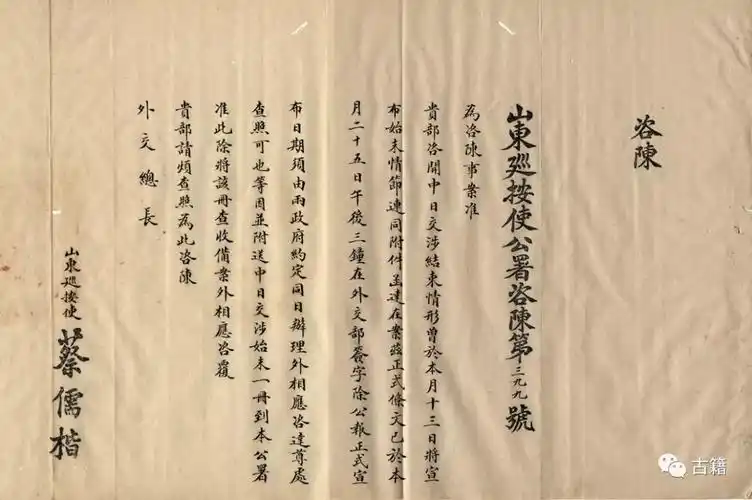 咨陳
山東巡按使公署咨陳第三九九號
為咨陳事案准
貴部咨開中日交涉結束情形曾於本月十三日將宣
布始末情節連同附件函達在案茲正式條文已於本
月二十五日午後三鐘在外交部簽字除公報正式宣
布日期須由兩政府約定同日辦理外相應咨達尊處
查照可也等因並附送中日交涉始末一冊到本公署
准此除將該冊查收備案外相應咨覆
貴部請煩查照為此咨陳
外交總長
山東巡按使 蔡儒楷
古籍